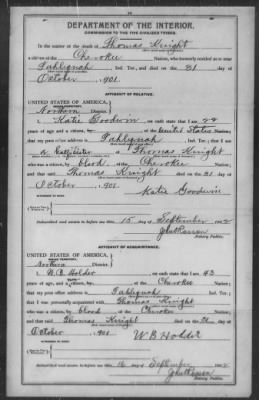 DEPARTMENT OF THE INTERIOR.
COMMISSION TO THE FIVE CIVILIZED TRIBES.
In the matter of the death of Thomas Knight
a citizen of the Cherokee Nation, who formerly resided at or near
Tahlequah, Ind. Ter., and died on the 31 day of
October, 1901.
AFFIDAVIT OF RELATIVE.
UNITED STATES OF AMERICA,
Northern District.
I, Katie Goodwin, on oath state that I am 22
years of age and a citizen, of the United States
that my post office address is Tahlequah, Ind. Ter.; that I am
a half sister of Thomas Knight
who was a citizen, by blood, of the Cherokee Nation;
and that said Thomas Knight died on the 31 day of
October, 1901.
Katie Goodwin
Subscribed and sworn to before me this 15 day of September, 1902
Notary Public.
AFFIDAVIT OF ACQUAINTANCE.
UNITED STATES OF AMERICA,
Northern District.
I, W. B. Holder, on oath state that I am 43
years of age, and a citizen, of the Cherokee Nation;
that my post office address is Tahlequah, Ind. Ter.;
that I was personally acquainted with Thomas Knight
who was a citizen, by blood, of the Cherokee Nation;
and that said Thomas Knight died on the 31 day of
October, 1901.
W B Holder
Subscribed and sworn to before me this 16 day of September, 1902
Notary Public.